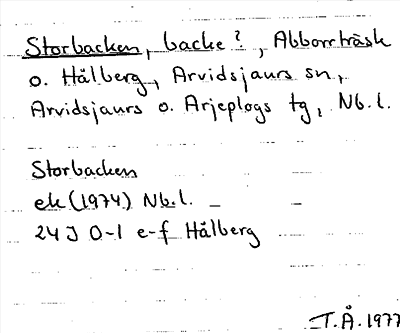 Storbacken, backe?, Abborrträsk
o. Hålberg, Arvidsjaurs sn,
Arvidsjaurs o. Arjeplogs tg, Nb. l.
Storbacken
ek (1974) Nb. l. –
24 J 0-1 e-f Hålberg
T. Å. 1977